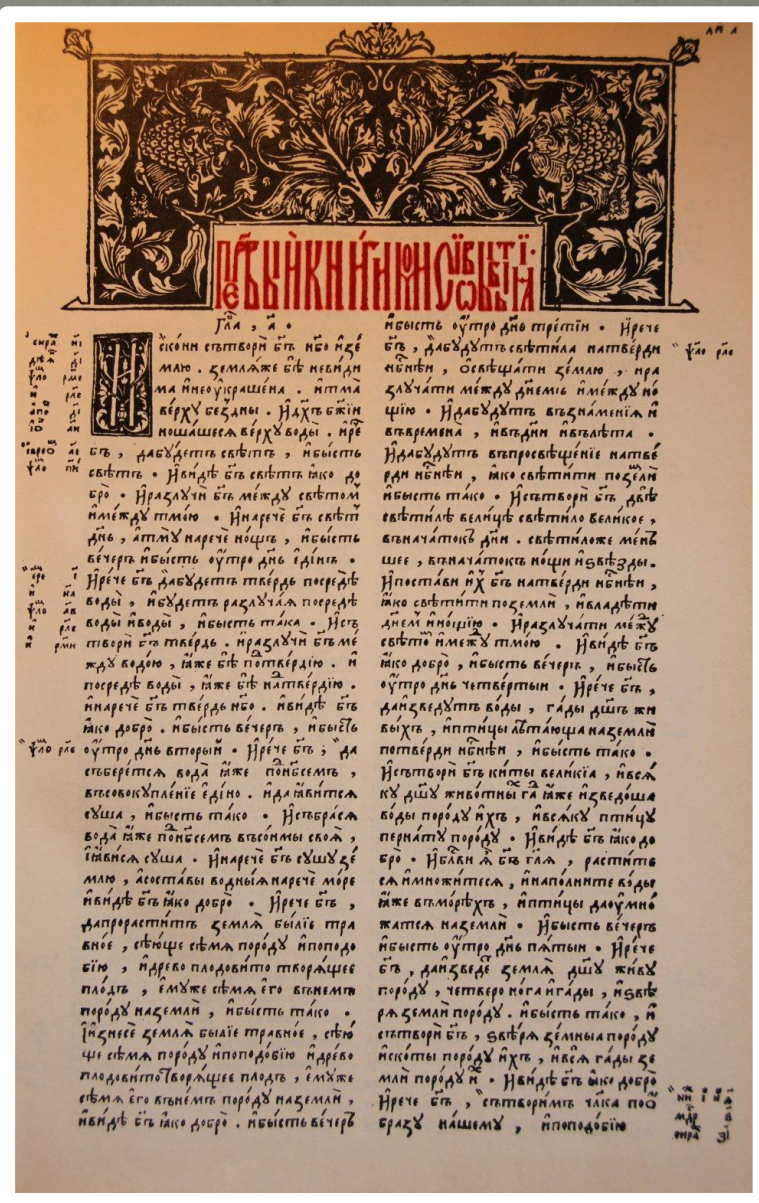 Гла҃, а҃ .
Искони сътвори бг҃ъ нб҃о и зе
млю . земляже бѣ невиди
ма и неѹкрашена . и тма
верху бездны . и дх҃ъ бж҃іи
ношашеся верху воды . и рече
бг҃ъ , да будетъ свѣтъ , и бысть
свѣтъ . и видѣ бг҃ъ свѣтъ ꙗко до
бро . и разлучи бг҃ъ между свѣтом
и между тмою . и нарече бг҃ъ свѣт
дн҃ь , а тму нарече нощь , и бысть
вечеръ и бысть ѹтро дн҃ь единъ .
И рече бг҃ъ да будетъ твердь посредѣ
воды , и будетъ разлучая посредѣ
воды и воды , и бысть така . И съ
твори бг҃ъ твердь . и разлучи бг҃ъ ме
жду водою , ꙗже бѣ под твердію . и
посредѣ воды , ꙗже бѣ над твердію .
и нарече бг҃ъ твердь нб҃о . и видѣ бг҃ъ
ꙗко добро . и бысть вечеръ , и бысть
ѹтро дн҃ь вторый . И рече бг҃ъ ; да
съберется вода ꙗже под нб҃семъ ,
въ совокупленіе едино . и да ꙗвится
суша , и бысть тако . И събрася
вода ꙗже под нб҃семъ въ сонмы своя ,
і ꙗвися суша . И нарече бг҃ъ сушу зе
млю , а составы водныя нарече море
и видѣ бг҃ъ ꙗко добро . И рече бг҃ъ ,
да прораститъ земля быліе тра
вное , сѣюще сѣмя породу и по подо
бію , и древо плодовито творящее
плодъ , емуже сѣмя его въ немъ
породу на земли , и бысть тако .
І изнесе земля быліе травное , сѣю
ще сѣмя породу и по подобію и древо
плодовито творящее плодъ , емуже
сѣмя его въ немъ породу на земли ,
и видѣ бг҃ъ ꙗко добро . и бысть вечеръ
и бысть ѹтро дн҃ь третіи . И рече
бг҃ъ , да будутъ свѣтила на тверди
нб҃нѣи , освѣщати землю , и ра
злучати между днемъ и между но
щію . И да будутъ въ знаменія и
въ времена , и въ дни и въ лѣта .
И да будутъ въ просвѣщеніе на тве
рди нб҃нѣи , ꙗко свѣтити по земли
и бысть тако . И сътвори бг҃ъ двѣ
свѣтилѣ велицѣ свѣтило великое ,
въ начатокъ дни . свѣтило же мень
шее , въ начатокъ нощи и ѕвѣзды .
И постави их бг҃ъ на тверди нб҃нѣи ,
ꙗко свѣтити по земли , и владѣти
днем и нощію . И разлучати межу
свѣтом и межу тмою . И видѣ бг҃ъ
ꙗко добро , и бысть вечеръ , и бысть
ѹтро дн҃ь четвертыи . И рече бг҃ъ ,
да изведутъ воды , гады дш҃ъ жи
выхъ , и птицы лѣтающа на земли
по тверди нб҃нѣи , и бысть тако .
И сътвори бг҃ъ киты великіа , и вся
ку дш҃у животных гад ꙗже изведоша
воды породу ихъ , и всяку птицу
пернату породу . И видѣ бг҃ъ ꙗко до
бро . И блг҃ви я бг҃ъ гл҃я , раститѣ
ся и множитеся , и наполните воды
ꙗже въ моряхъ , и птицы да умно
жатся на земли . И бысть вечеръ
и бысть ѹтро дн҃ь пятыи . И рече
бг҃ъ , да изведе земля дш҃у живу
породу , четвероногая и гады , и ѕвѣ
ря земли породу . и бысть тако , и
сътвори бг҃ъ , ѕвѣря земныа породу
и скоты породу ихъ , и вся гады зе
мли породу их . И видѣ бг҃ъ ꙗко добро
И рече бг҃ъ , сътворимъ чл҃ка по о
бразу нашему , и по подобію